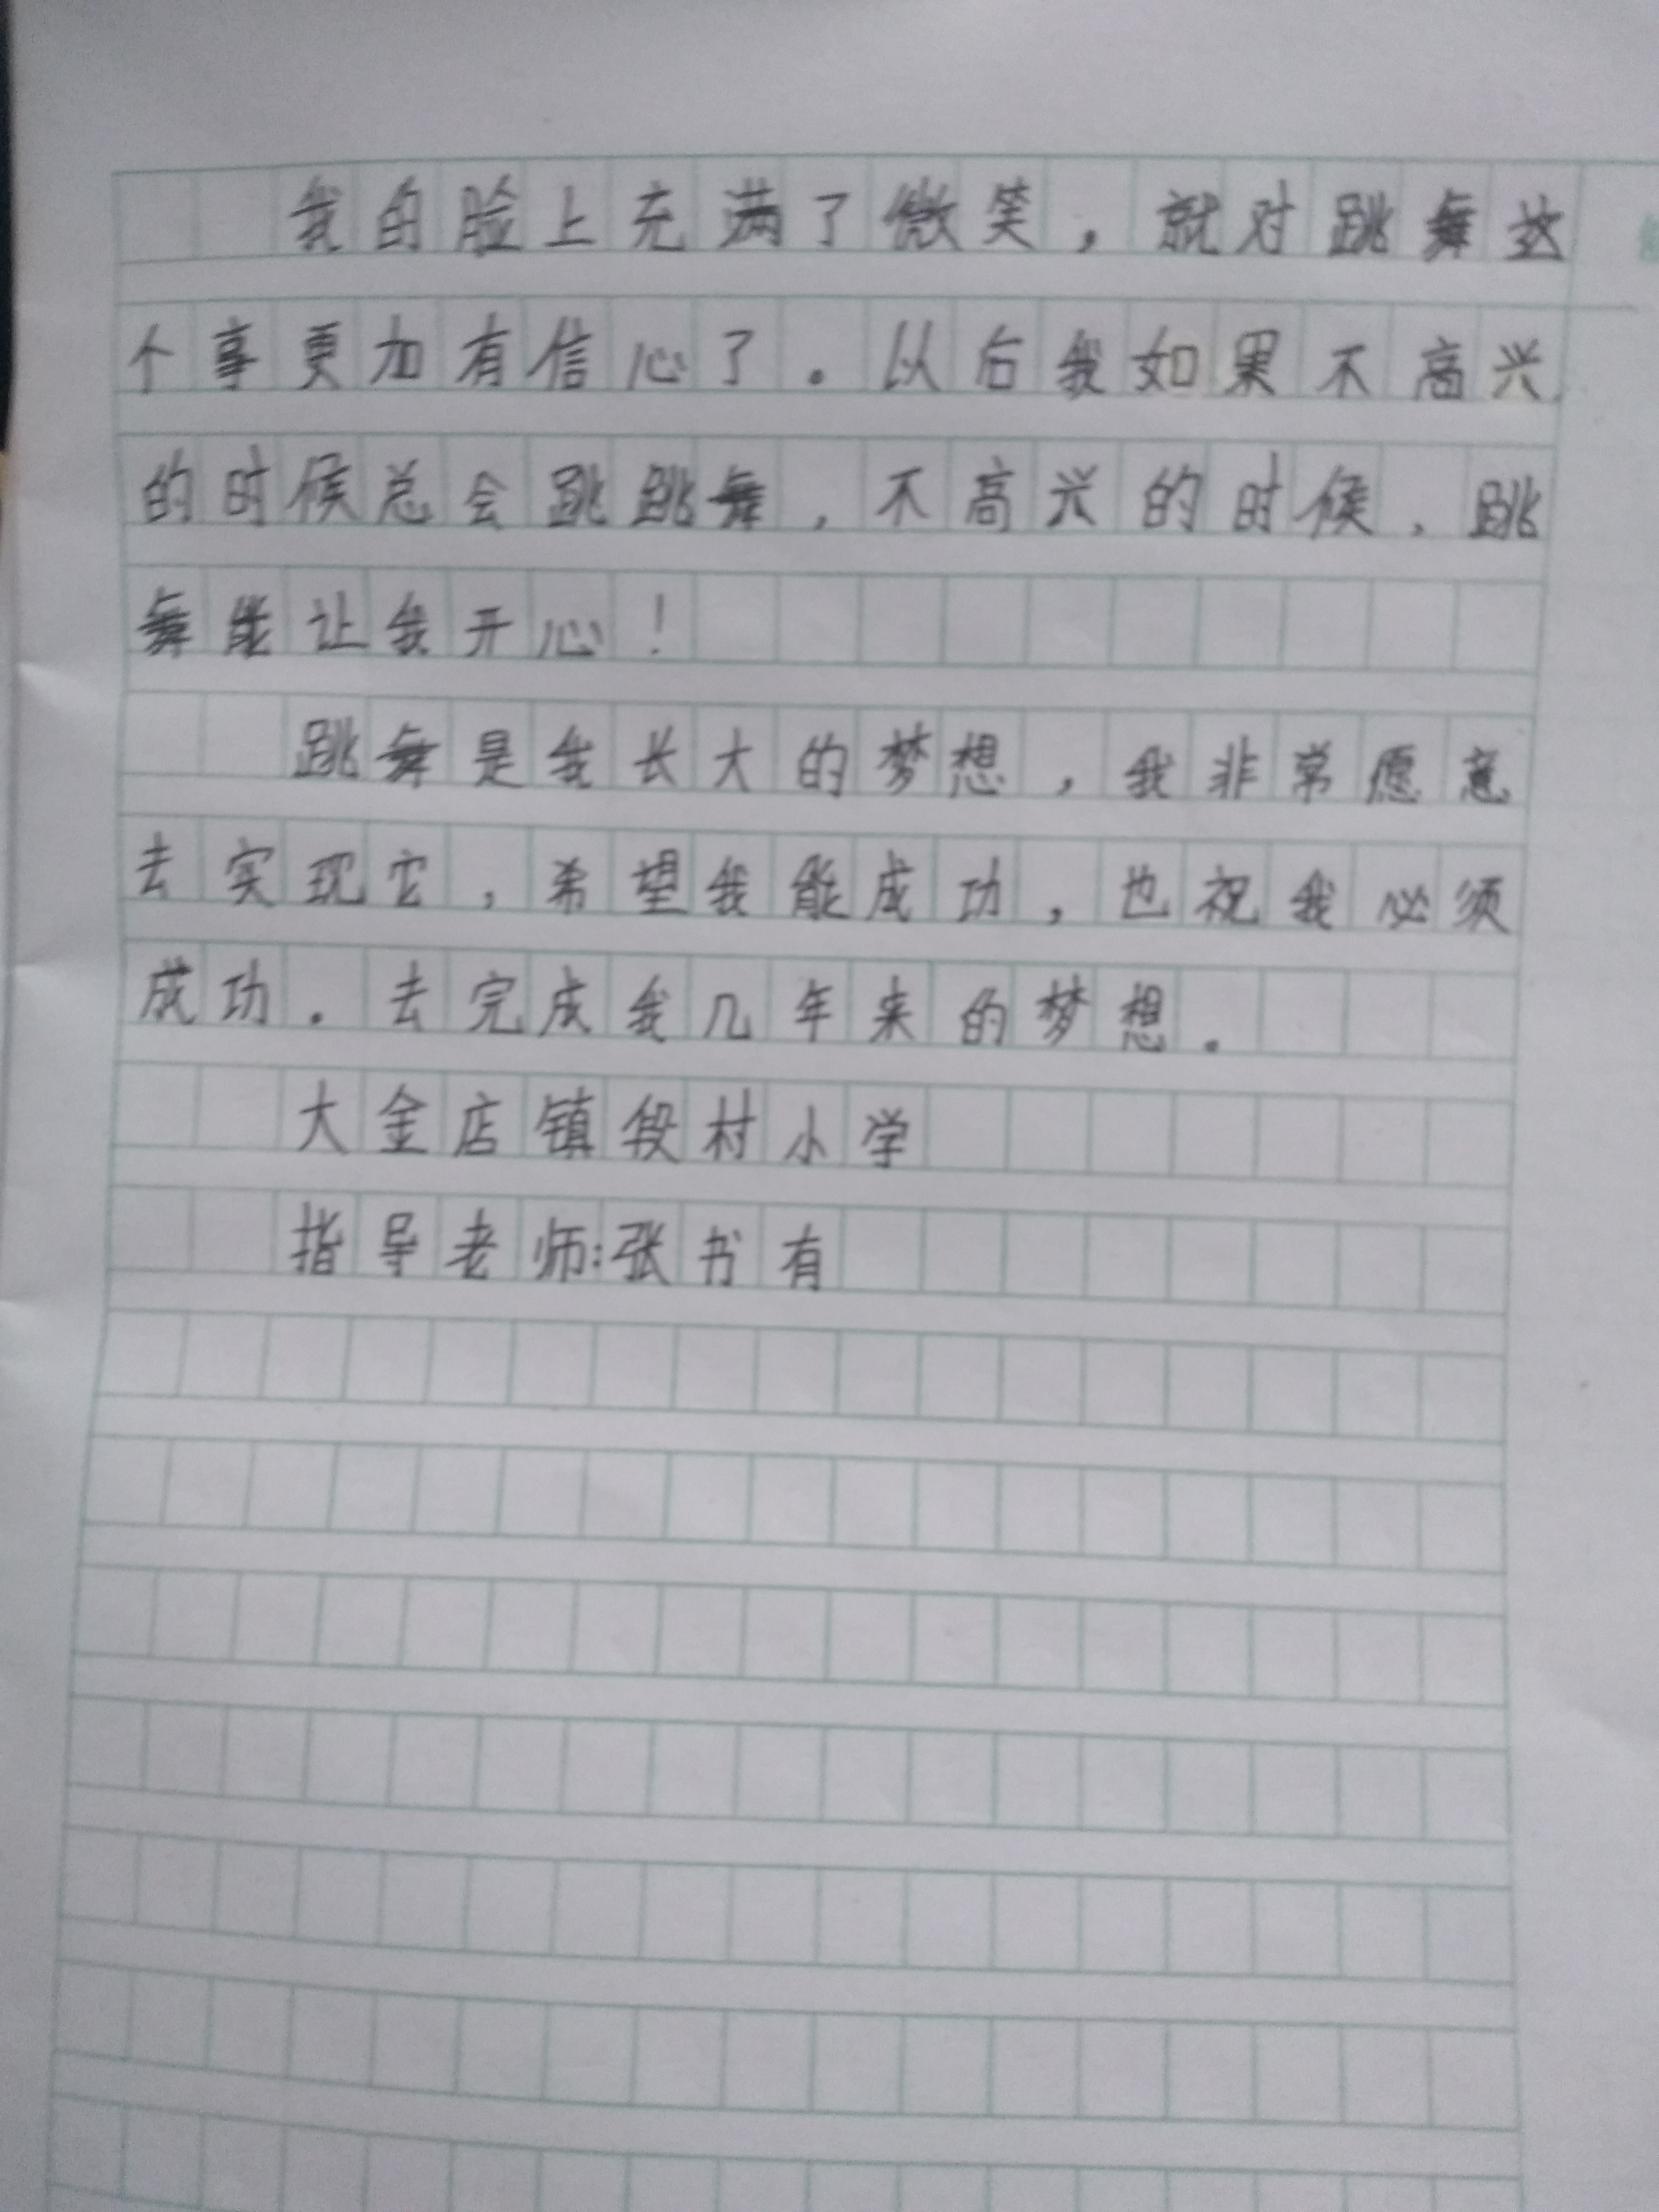 我的脸上充满了微笑，就对跳舞这
个事更加有信心了。以后我如果不高兴
的时候总会跳跳舞，不高兴的时候，跳
舞能让我开心！
跳舞是我长大的梦想，我非常愿意
去实现它，希望我能成功，也祝我必须
成功。去完成我几年来的梦想。
大金店镇段村小学
指导老师:张书有